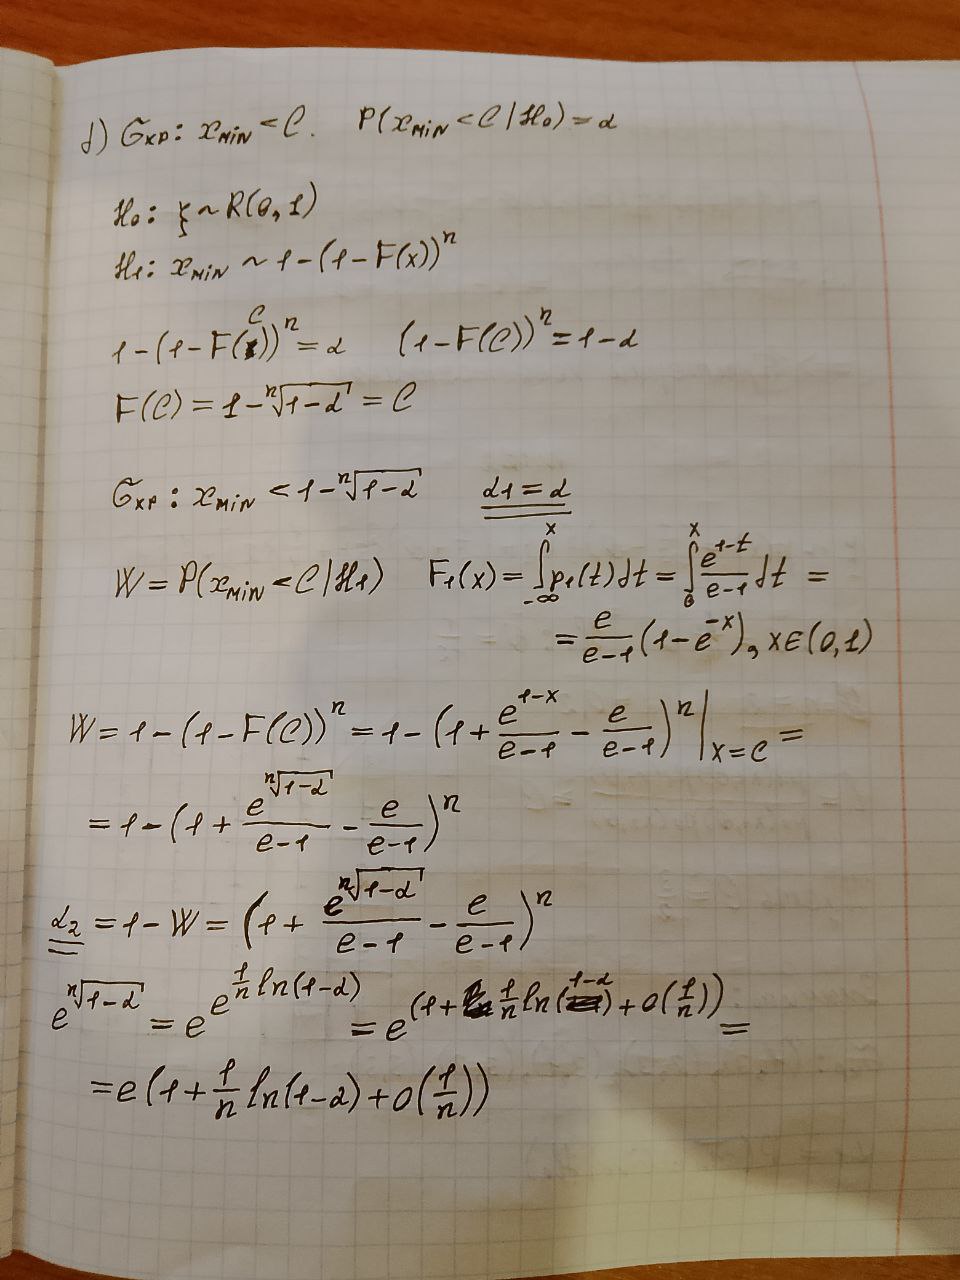 d) Gкр: xmin < C. P(xmin < C | H₀) = α
H₀: ξ ~ R(0, 1)
H₁: xmin ~ 1 - (1 - F(x))ⁿ
1 - (1 - F(C))ⁿ = α (1 - F(C))ⁿ = 1 - α
F(C) = 1 - ⁿ√(1-α) = C
Gкр: xmin < 1 - ⁿ√(1-α) α₁ = α
W = P(xmin < C | H₁) F₁(x) = ∫_{-∞}^{x} p₁(t)dt = ∫_{0}^{x} e^{1-t}/(e-1) dt =
= e/(e-1) (1 - e^{-x}), x∈(0, 1)
W = 1 - (1 - F(C))ⁿ = 1 - (1 + e^{1-x}/(e-1) - e/(e-1))ⁿ |_{x=C} =
= 1 - (1 + e^{ⁿ√(1-α)}/(e-1) - e/(e-1))ⁿ
α₂ = 1 - W = (1 + e^{ⁿ√(1-α)}/(e-1) - e/(e-1))ⁿ
e^{ⁿ√(1-α)} = e^{e^{1/n ln(1-α)}} = e^{(1 + 1/n ln(1-α) + o(1/n))} =
= e(1 + 1/n ln(1-α) + o(1/n))